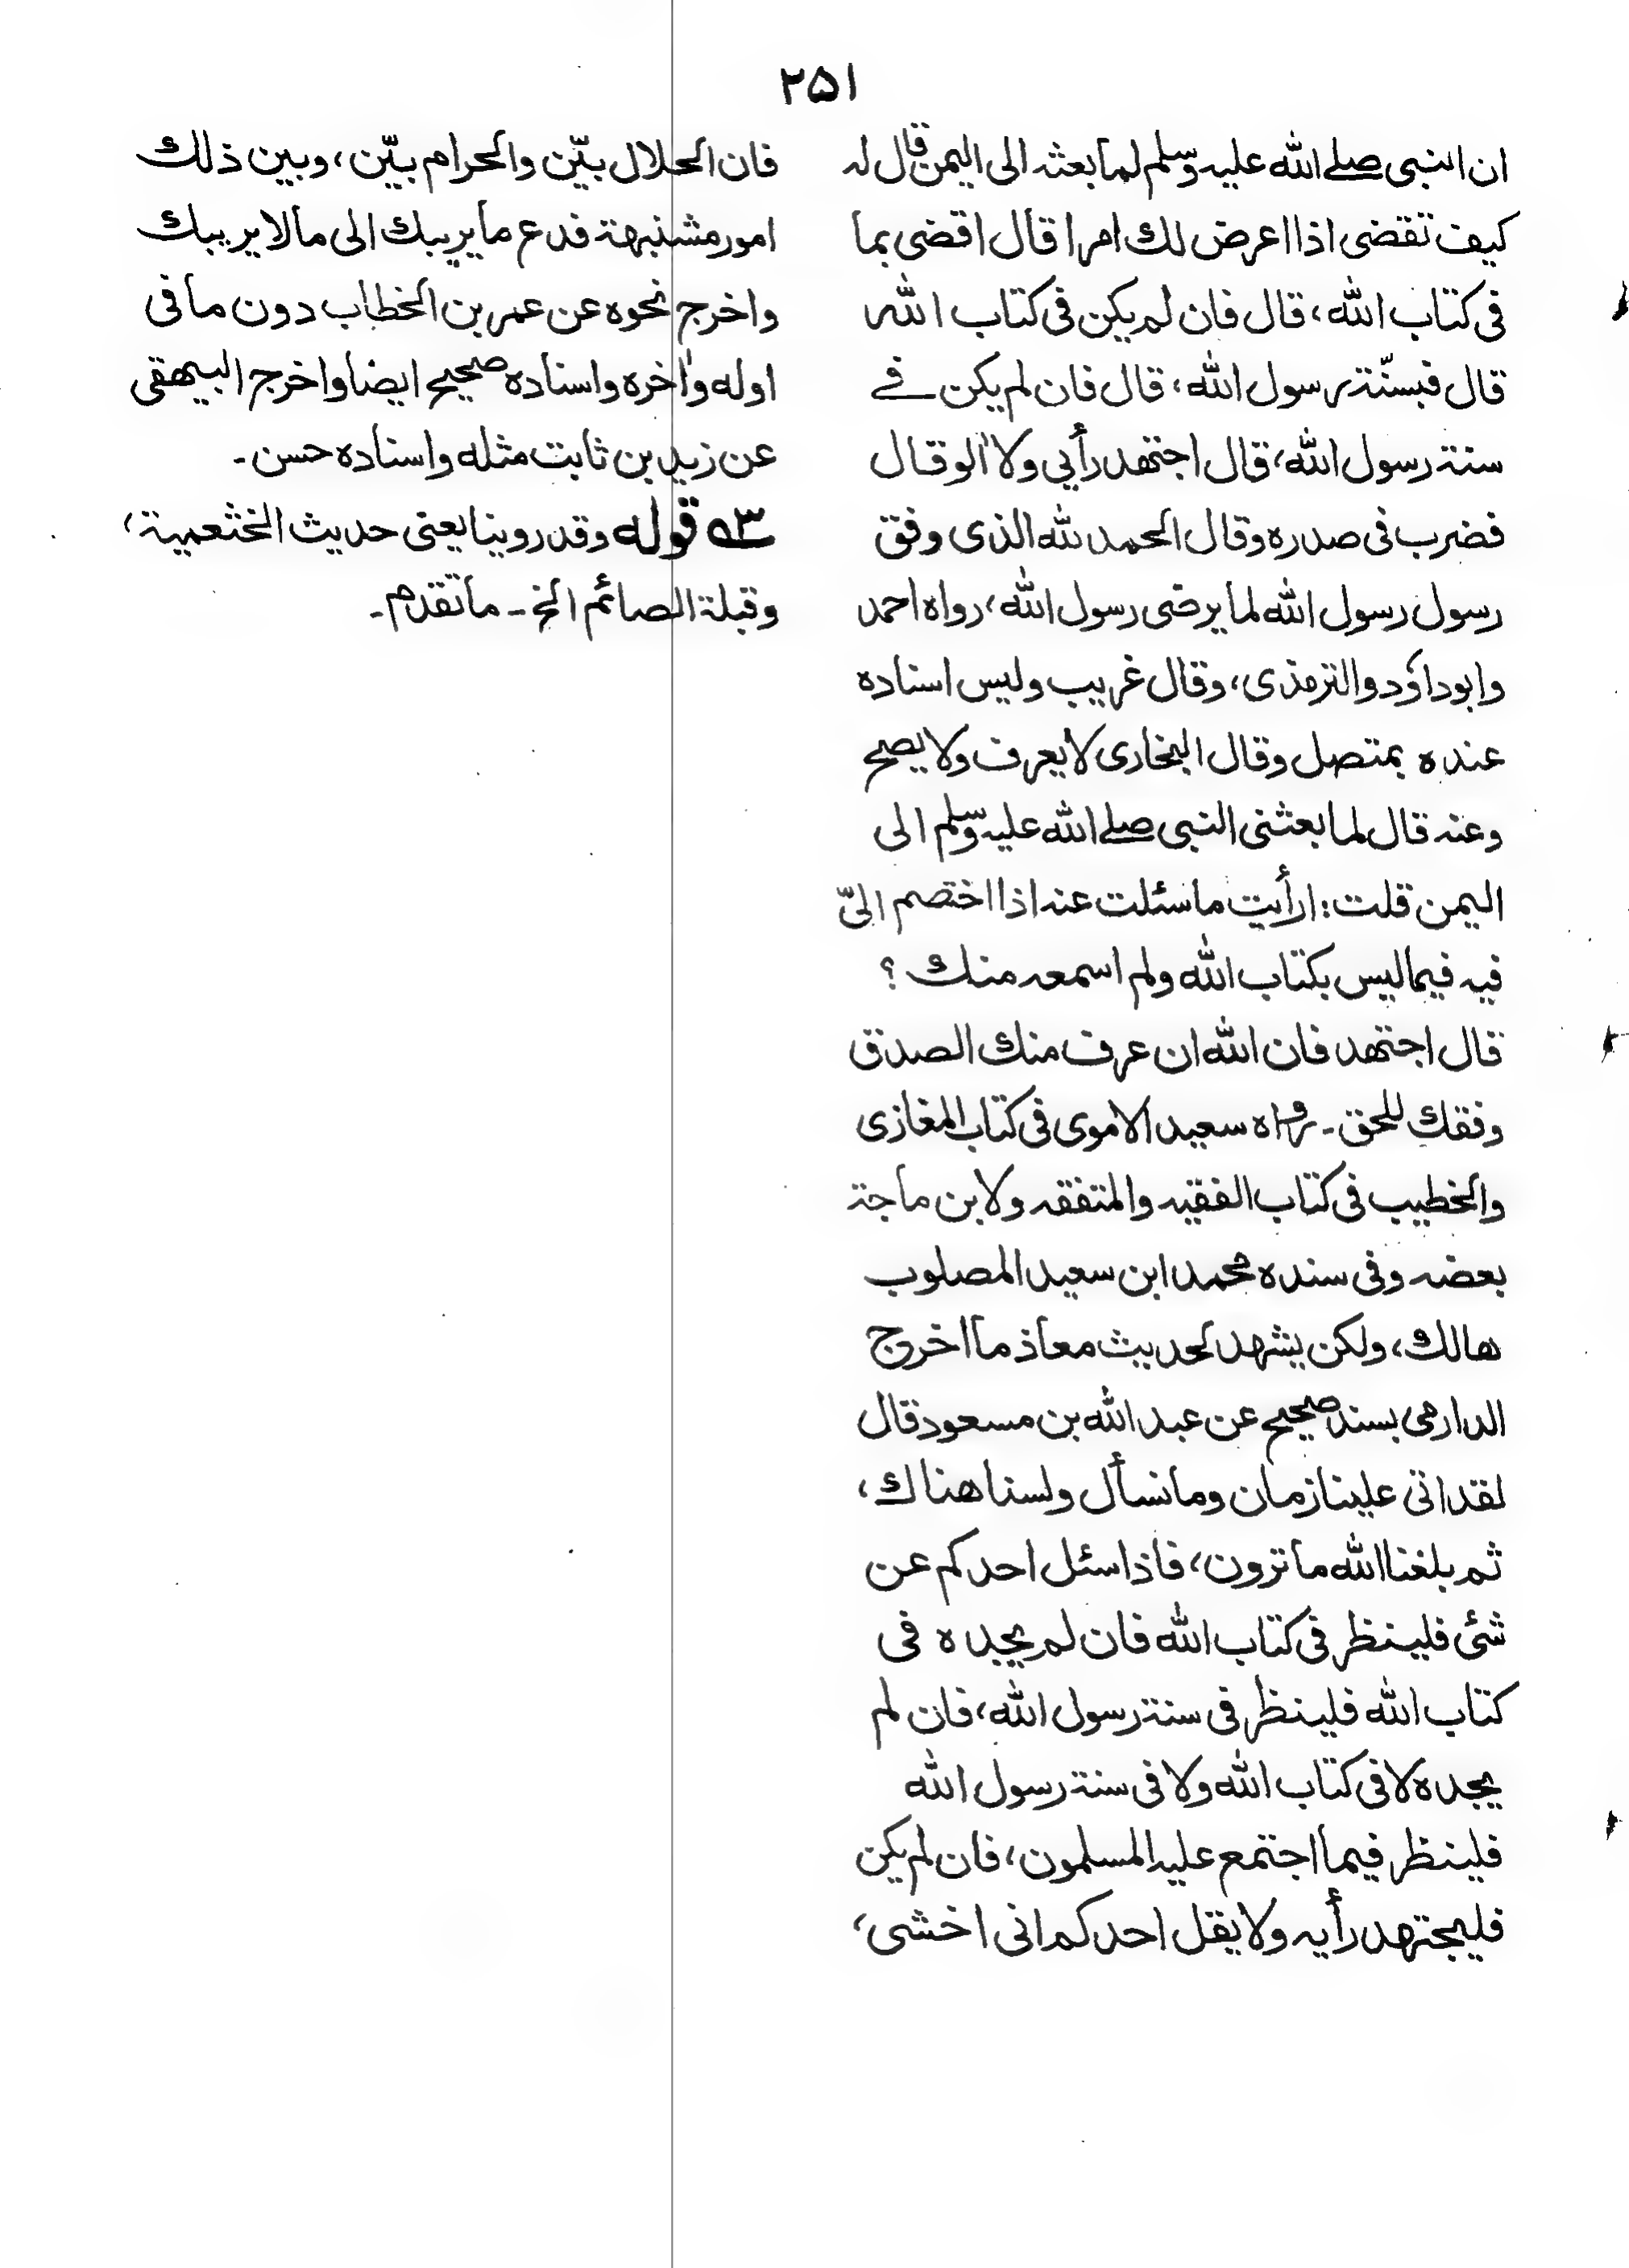 ٢٥١
ان النبی صلے اللہ علیہ وسلم لما بعثہ الی الیمن قال لہ
کیف تقضی اذا اعرض لك امرا قال اقضی بما
فی کتاب اللہ، قال فان لم یکن فی کتاب اللہ
قال فبسنّة رسول اللہ، قال فان لم یکن فے
سنة رسول اللہ، قال اجتھد رأیي ولا اٰلو قال
فضرب فی صدره وقال الحمد للہ الذی وفق
رسول رسول اللہ لما یرضی رسول اللہ، رواه احمد
وابوداؤد والترمذی، وقال غریب ولیس اسناده
عنده بمتصل وقال البخاری لا یعرف ولا یصح
وعنہ قال لما بعثنی النبی صلے اللہ علیہ وسلم الی
الیمن قلت: ارأیت ما سئلت عنہ اذا اختصم الیّ
فیہ فیما لیس بکتاب اللہ ولم اسمعہ منك ؟
قال اجتھد فان اللہ ان عرف منك الصدق
وفقك للحق۔ رواه سعید الاموی فی کتاب المغازی
والخطیب فی کتاب الفقیہ والمتفقہ ولابن ماجة
بعضہ وفی سنده محمد ابن سعید المصلوب
ھالك، ولکن یشھد لحدیث معاذ ما اخرج
الدارمی بسند صحیح عن عبد اللہ بن مسعود قال
لقد اتی علینا زمان وما نسأل ولسنا ھناك،
ثم بلغنا اللہ ما ترون، فاذا سئل احدکم عن
شئی فلینظر فی کتاب اللہ فان لم یجده فی
کتاب اللہ فلینظر فی سنة رسول اللہ، فان لم
یجده لا فی کتاب اللہ ولا فی سنة رسول اللہ
فلینظر فیما اجتمع علیہ المسلمون، فان لم یکن
فلیجتھد رأیہ ولا یقل احدکم انی اخشی،
فان الحلال بیّن والحرام بیّن، وبین ذلك
امور مشتبھة فدع ما یریبك الی مالا یریبك
واخرج نحوه عن عمر بن الخطاب دون ما فی
اوله واٰخره واسناده صحیح ایضا واخرج البیھقی
عن زید بن ثابت مثله واسناده حسن۔
٥٣ قوله وقد روینا یعنی حدیث الخثعمیة،
وقبلة الصائم الخ۔ ما تقدم۔